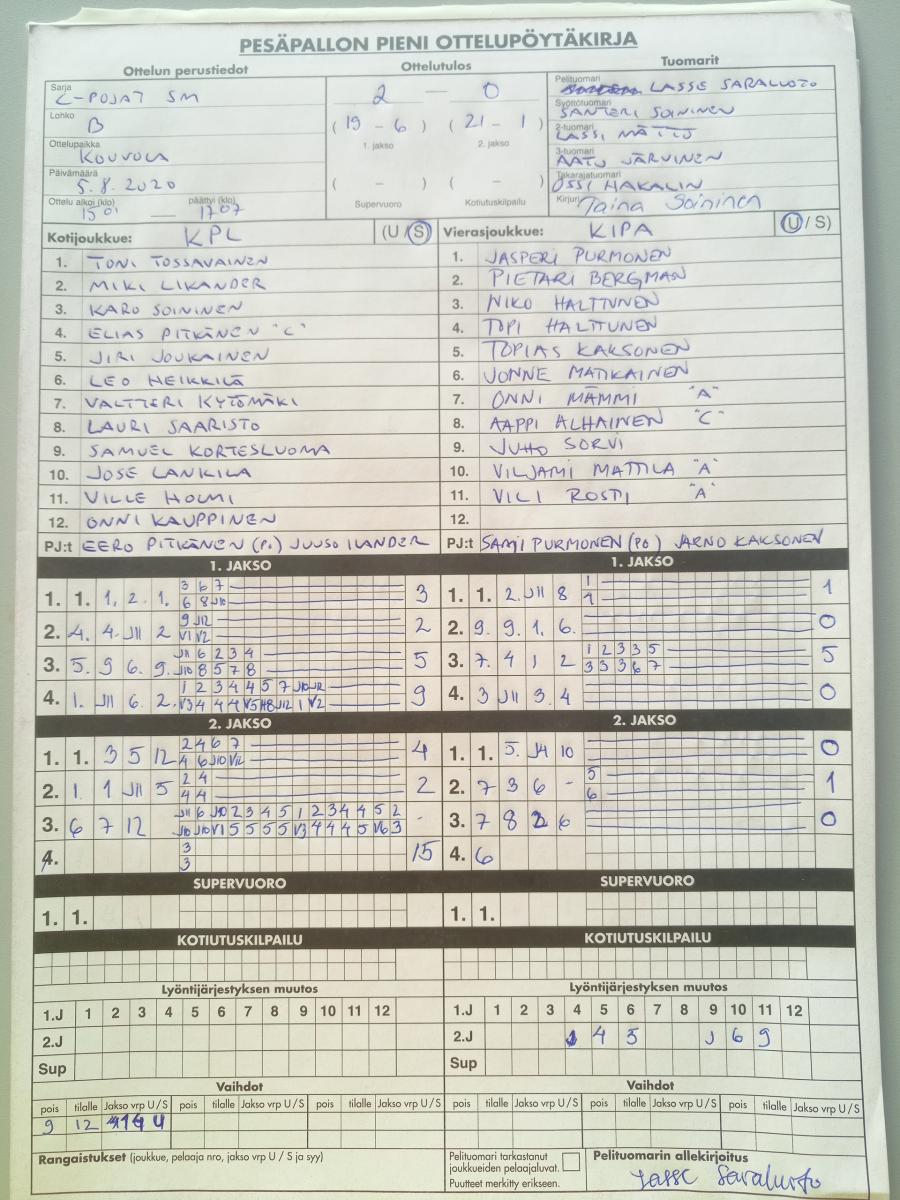 PESÄPALLON PIENI OTTELUPÖYTÄKIRJA
Ottelun perustiedot
Ottelutulos
Tuomarit
Sarja
C-POJAT SM
Lohko
B
Ottelupaikka
KOUVOLA
Päivämäärä
5.8.2020
Ottelu alkoi (klo) päättyi (klo)
1501 — 1707
2 — 0
(19 - 6) (21 - 1)
1. jakso 2. jakso
( - ) ( - )
Supervuoro Kotiutuskilpailu
Pelituomari
LASSE SARALUOTO
Syöttötuomari
SANTERI SOININEN
2-tuomari
LASSI MÄTTÖ
3-tuomari
AATU JÄRVINEN
Takarajatuomari
OSSI HAKALIN
Kirjuri
Taina Soininen
Kotijoukkue: KPL (U / S)
1. TONI TOSSAVAINEN
2. MIKI LIKANDER
3. KARO SOININEN
4. ELIAS PITKÄNEN "C"
5. JIRI JOUKAINEN
6. LEO HEIKKILÄ
7. VALTTERI KYTÖMÄKI
8. LAURI SAARISTO
9. SAMUEL KORTESLUOMA
10. JOSE LANKILA
11. VILLE HOLMI
12. ONNI KAUPPINEN
PJ:t EERO PITKÄNEN (PJ) JUUSO ILANDER
Vierasjoukkue: KIPA (U / S)
1. JASPERI PURMONEN
2. PIETARI BERGMAN
3. NIKO HALTTUNEN
4. TOPI HALTTUNEN
5. TOPIAS KAKSONEN
6. JONNE MATIKAINEN
7. ONNI MÄMMI "A"
8. AAPPI ALHAINEN "C"
9. JUHO SORVI
10. VILJAMI MATTILA "A"
11. VILI ROSTI "A"
12.
PJ:t SAMI PURMONEN (PJ) JARNO KAKSONEN
1. JAKSO
3 6 7
1. 1. 1, 2. 1. 3
6 8 J10
9 J12
2. 4. 4. J11 2 2
V1 V2
J11 6 2 3 4
3. 5. 9 6. 9. 5
J10 8 5 7 8
1 2 3 4 4 5 7 J10 J12
4. 1. J11 6. 2. 9
1. JAKSO
1. 1. 2. J11 8 1
2. 9. 9. 1. 6. 0
1 2 3 3 5
3. 7. 4 1 2 5
3 3 3 6 7
4. 3 J11 3. 4 0
2. JAKSO
2 4 6 7
1. 1. 3 5 12 4
4 6 J10 V12
2 4
2. 1 1 J11 5 2
4 4
J11 6 J10 2 3 4 5 1 2 3 4 4 5 2
3. 6 7 12 -
J10 J10 V1 5 5 5 5 V3 4 4 4 5 V6 3
3
4. 15
3
2. JAKSO
1. 1. 5. J4 10 0
5
2. 7 3 6 - 1
6
3. 7 8 2 6 0
4. 6
SUPERVUORO
1. 1.
SUPERVUORO
1. 1.
KOTIUTUSKILPAILU
KOTIUTUSKILPAILU
Lyöntijärjestyksen muutos
1.J 1 2 3 4 5 6 7 8 9 10 11 12
2.J
Sup
Lyöntijärjestyksen muutos
1.J 1 2 3 4 5 6 7 8 9 10 11 12
2.J 4 5 J 6 9
Sup
Vaihdot
pois tilalle Jakso vrp U / S pois tilalle Jakso vrp U / S pois tilalle Jakso vrp U / S
9 12
Vaihdot
pois tilalle Jakso vrp U / S pois tilalle Jakso vrp U / S pois tilalle Jakso vrp U / S
Rangaistukset (joukkue, pelaaja nro, jakso vrp U / S ja syy)
Pelituomari tarkastanut
joukkueiden pelaajaluvat.
Puutteet merkitty erikseen.
Pelituomarin allekirjoitus
Lasse Saraluoto